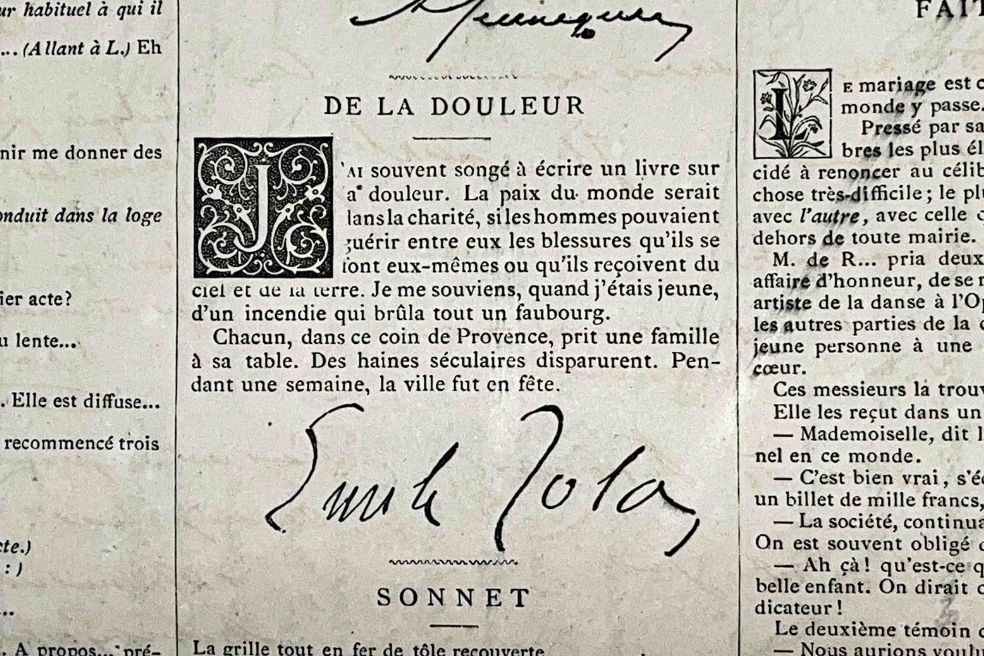 ur habituel à qui il
... (Allant à L.) Eh
nir me donner des
onduit dans la loge
ier acte?
u lente...
. Elle est diffuse...
recommencé trois
te.)
: )
...
. A propos... pré-
DE LA DOULEUR
J'AI souvent songé à écrire un livre sur
a douleur. La paix du monde serait
dans la charité, si les hommes pouvaient
guérir entre eux les blessures qu'ils se
font eux-mêmes ou qu'ils reçoivent du
ciel et de la terre. Je me souviens, quand j'étais jeune,
d'un incendie qui brûla tout un faubourg.
Chacun, dans ce coin de Provence, prit une famille
à sa table. Des haines séculaires disparurent. Pen-
dant une semaine, la ville fut en fête.
Emile Zola
SONNET
La grille tout en fer de tôle recouverte
FAIT
LE mariage est c
monde y passe.
Pressé par sa
bres les plus él
cidé à renoncer au célib
chose très-difficile; le plu
avec l'autre, avec celle
dehors de toute mairie.
M. de R... pria deux
affaire d'honneur, de se r
artiste de la danse à l'Op
les autres parties de la
jeune personne à une
cœur.
Ces messieurs la trouv
Elle les reçut dans un
— Mademoiselle, dit l
nel en ce monde.
— C'est bien vrai, s'éc
un billet de mille francs,
— La société, continua
On est souvent obligé
— Ah çà! qu'est-ce q
belle enfant. On dirait
dicateur!
Le deuxième témoin
— Nous aurions voulu